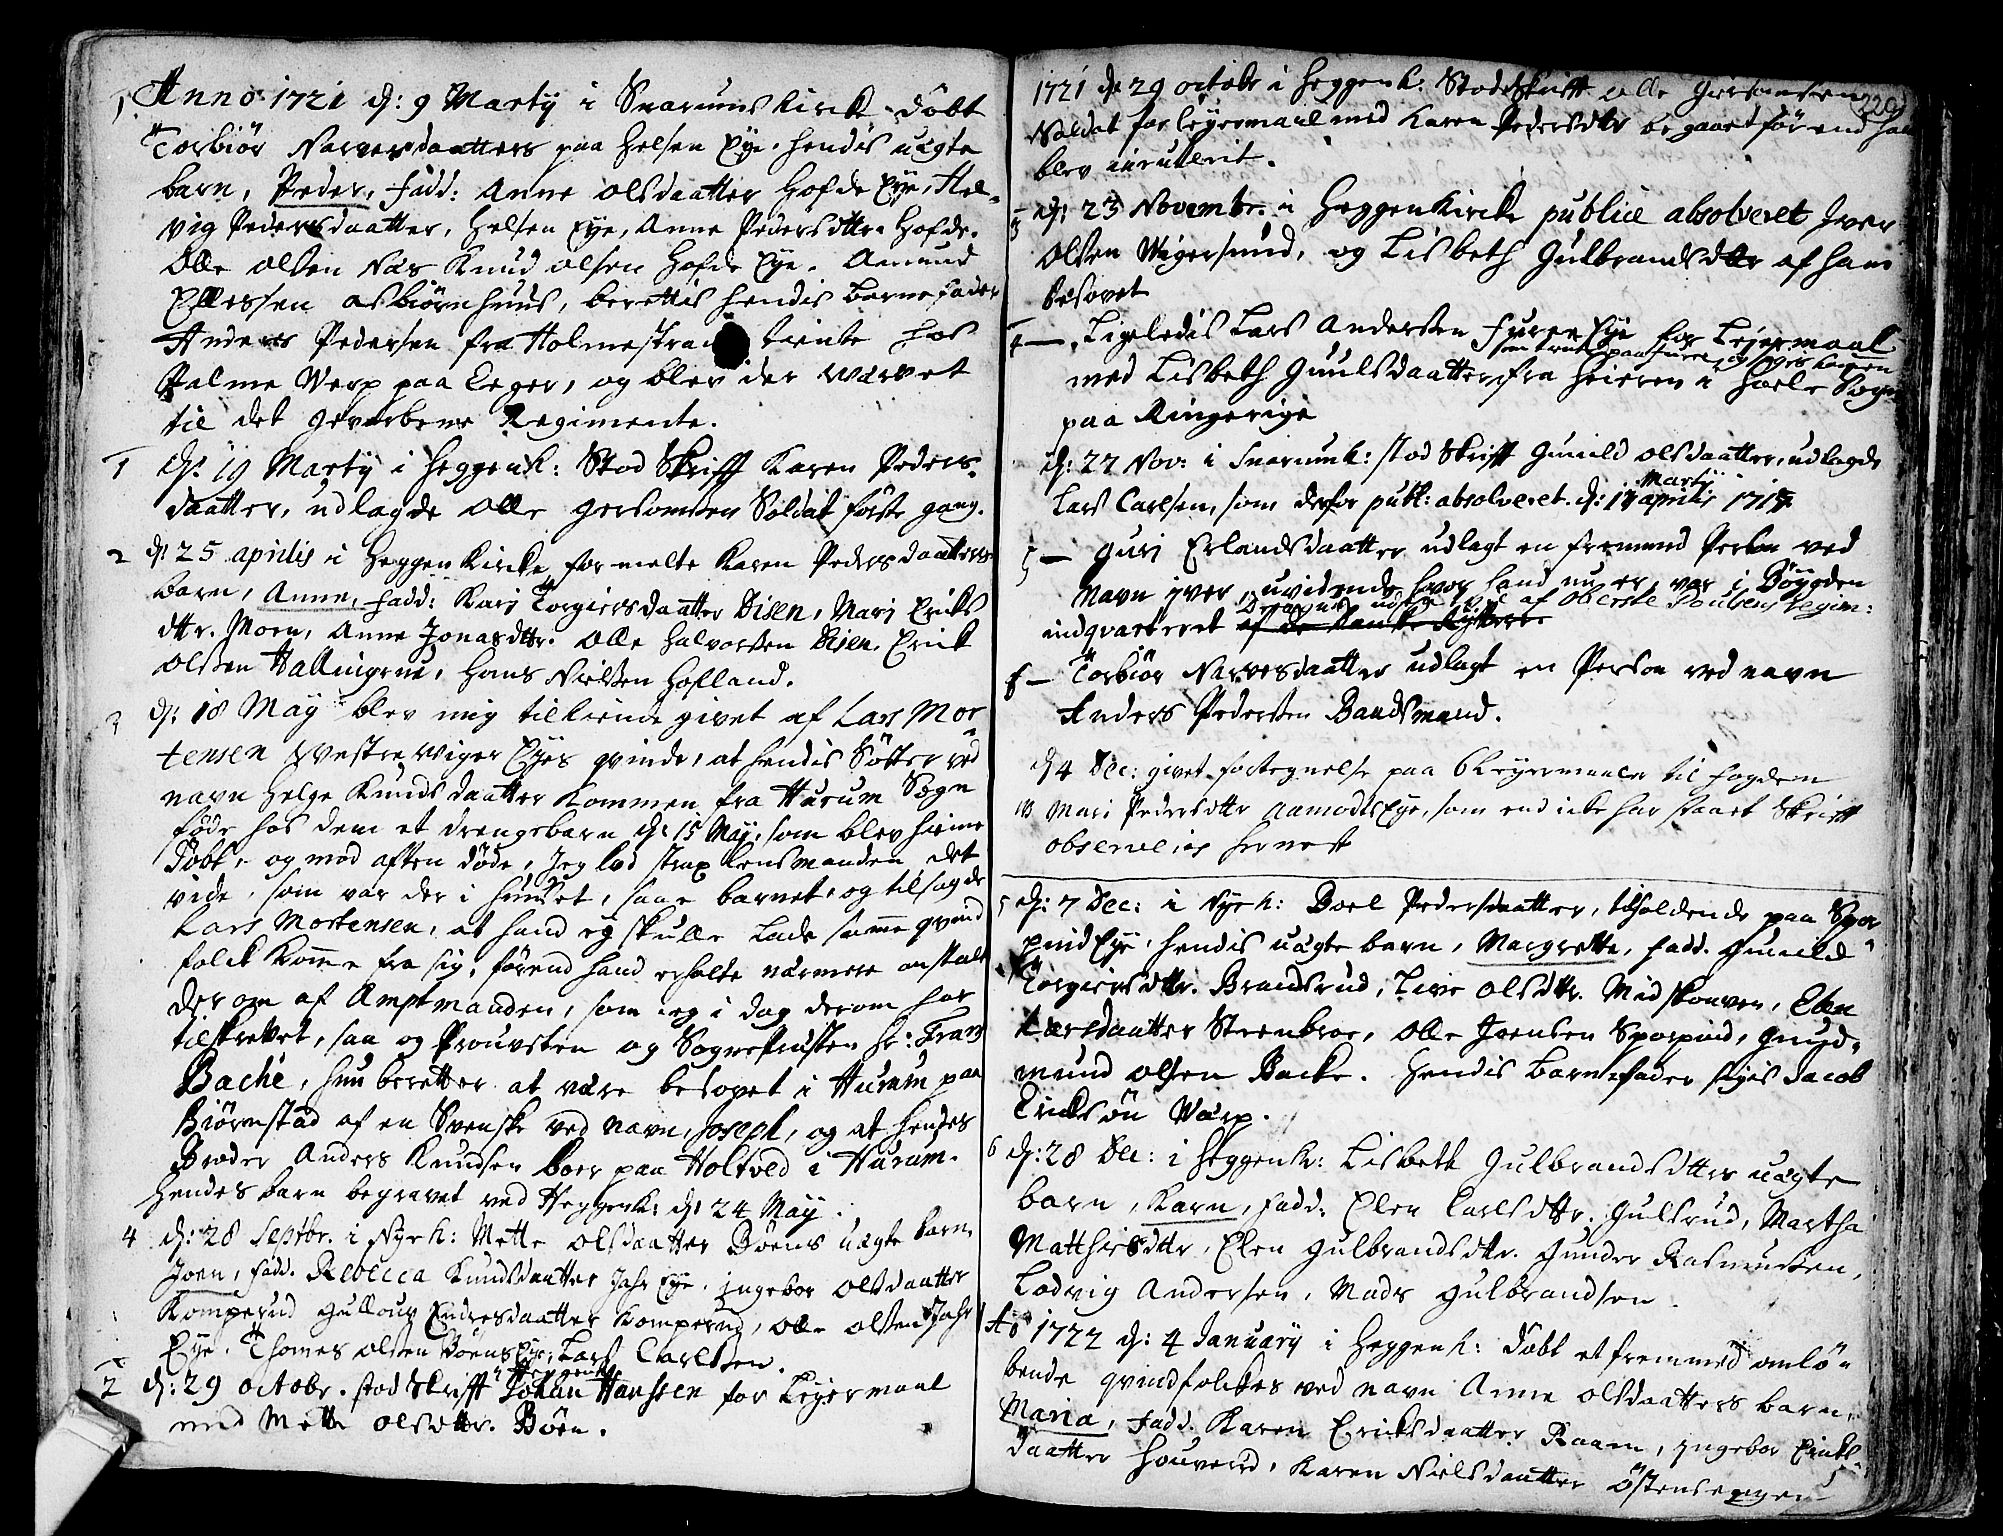 1 Anno 1721 d: 9 Martÿ i Snarums Kirck døbt
Torbiör Narvesdaatters paa Helsen Eÿe, hendis uægte
barn, Peder, Fadd: Anne Olsdaatter Hofde Eÿe, Hel-
vig Pedersdaatter, Helsen Eÿe, Anne Pedersdttr. Hofde.
Olle Olsen Næs Knud Olsen Hofde Eÿe. Amund
Ellessen Asbiørnhuus, berettis hendis Barnefader
Anders Pedersen fra Holmestrand tiente hos
Palme Werp paa Eeger, og blev der Warvet
til det gevorbene Regimente.
1 d: 19 Martÿ i Heggenk: Stod Skrifft Karen Peders-
daatter, udlagde Olle Gersonsen Soldat første gang.
2 d: 25 aprilis i Heggen Kircke formelte Karen Pedersdaatters
barn, Anne, Fadd: Kari Torgiersdaatter Disen, Mari Ericks
dttr. Moen, Anne Jonasdttr. Olle Halvorsen Disen. Erick
Olsen Hallingrue, Hans Nielsen Hofland.
3 d: 18 Maÿ blev mig tilkiende givet af Lars Mor
tensen Westre Wiger Eÿes qvinde, at hendis Søster ved
navn Helge Knudsdaatter Kommen fra Hurum Sogn
føde hos dem et drengebarn d: 15 Maÿ, som blev hieme
døbt, og mod aften døde, Jeg lod strax lensmanden det
vide, som var der i Huuset, saae barnet, og tilsagde
Lars Mortensen, at hand eÿ skulle lade samme qvind
folck komme fra sig, førend hand erholte nærmere anstalt
derom af Amptmanden, som ieg i dag derom har
tilskrevet, saa og Prousten og Sognepresten hr: Frans
Bache, hun beretter at være besovet i Hurum paa
Biørnstad af en Svenske ved navn, Joseph, og at hendes
Broder Anders Knudsen boer paa Holtved i Hurum.
Hendes barn begravet ved Heggenk: d: 24 Maÿ.
4 d: 28 Septbr. i Nÿek: Mette Olsdaatter Böens uægte barn
Joen, fadd. Rebecca Knudsdaatter Jahr Eÿe. Ingebor Olsdaatter
Komperud Gullour Endresdaatter Komperud, Olle Olsen Jahr
Eÿe. Thomes Olsen Böens Eÿe, Lars Carlsen.
2 d: 29 octobr. stod Skrifft Johan Hanssen for Leÿermaal
med Mette Olsdttr. Böen.
220
1721 d: 29 octobr i Heggenk: Stod Skrifft Olle Giersonsen
Soldat for leÿermaal med Karen Pedersdttr begaaet før end han
blev inrullerit.
3 d: 23 Novembr. i Heggen Kircke publice absolveret Iver
Olsen Wigersund, og Lisbeth Gulbrandsdttr af ham
besovet
4 — Ligeledis Lars Andersen Furre Eÿe for Lejermaal
med Lisbeth Guulsdaatter fra Heieren i Hoele Sogn
paa Ringerige
d: 27 Nov: i Snarumk: stod Skrifft Gunild Olsdaatter, udlagde
Martÿ
Lars Carlsen, som derfor publ: absolveret. d: 17 aprilis 1717
5 — Guri Erlandsdaatter udlagt en fremmed Person ved
Navn Iver, uvidende hvor hand nu er, var i Böÿgden
af Oberste Poulsens Regim:
indqvarteret af de Danske Rÿttere
6 — Torbiör Narvesdaatter udlagt en Person ved navn
Anders Pedersen Baadsmand.
d 4 Dec: givet fortegnelse paa 6 Leÿermaaler til fogden
NB Mari Pedersdttr Aamodts Eÿe, som end icke har staaet Skrifft
5 d: 7 Dec: i Nÿek: Boel Pedersdaatter, tilholdende paa Spor
pind Eÿe, hendis uægte barn, Margrette, Fadd. Gunild
Torgiersdttr. Brandsrud, Live Olsdttr. Midskouven, Elen
Larsdaatter Steenbroe, Olle Joensen Sporpind, Gud-
mund Olsen Backe. Hendis Barnefader siges Jacob
Ericksön Værp.
6 d: 28 Dec: i Heggenk: Lisbeth Gulbrandsdtters uægte
barn, Karn, Fadd: Elen Carlsdttr. Gulsrud, Martha
Matthisdttr, Elen Gulbrandsdttr. Gunder Rasmussen,
Lodvig Andersen, Mads Gulbrandsen.
Ao 1722 d: 4 Januarÿ i Heggenk: døbt et fremmed omlö-
bende qvindfolckes ved navn Anne Olsdaatters barn,
Maria, Fadd. Karen Ericksdaatter Kaarn, Ingebor Ericks-
daatter Houverud, Karen Nielsdaatter Östensengen